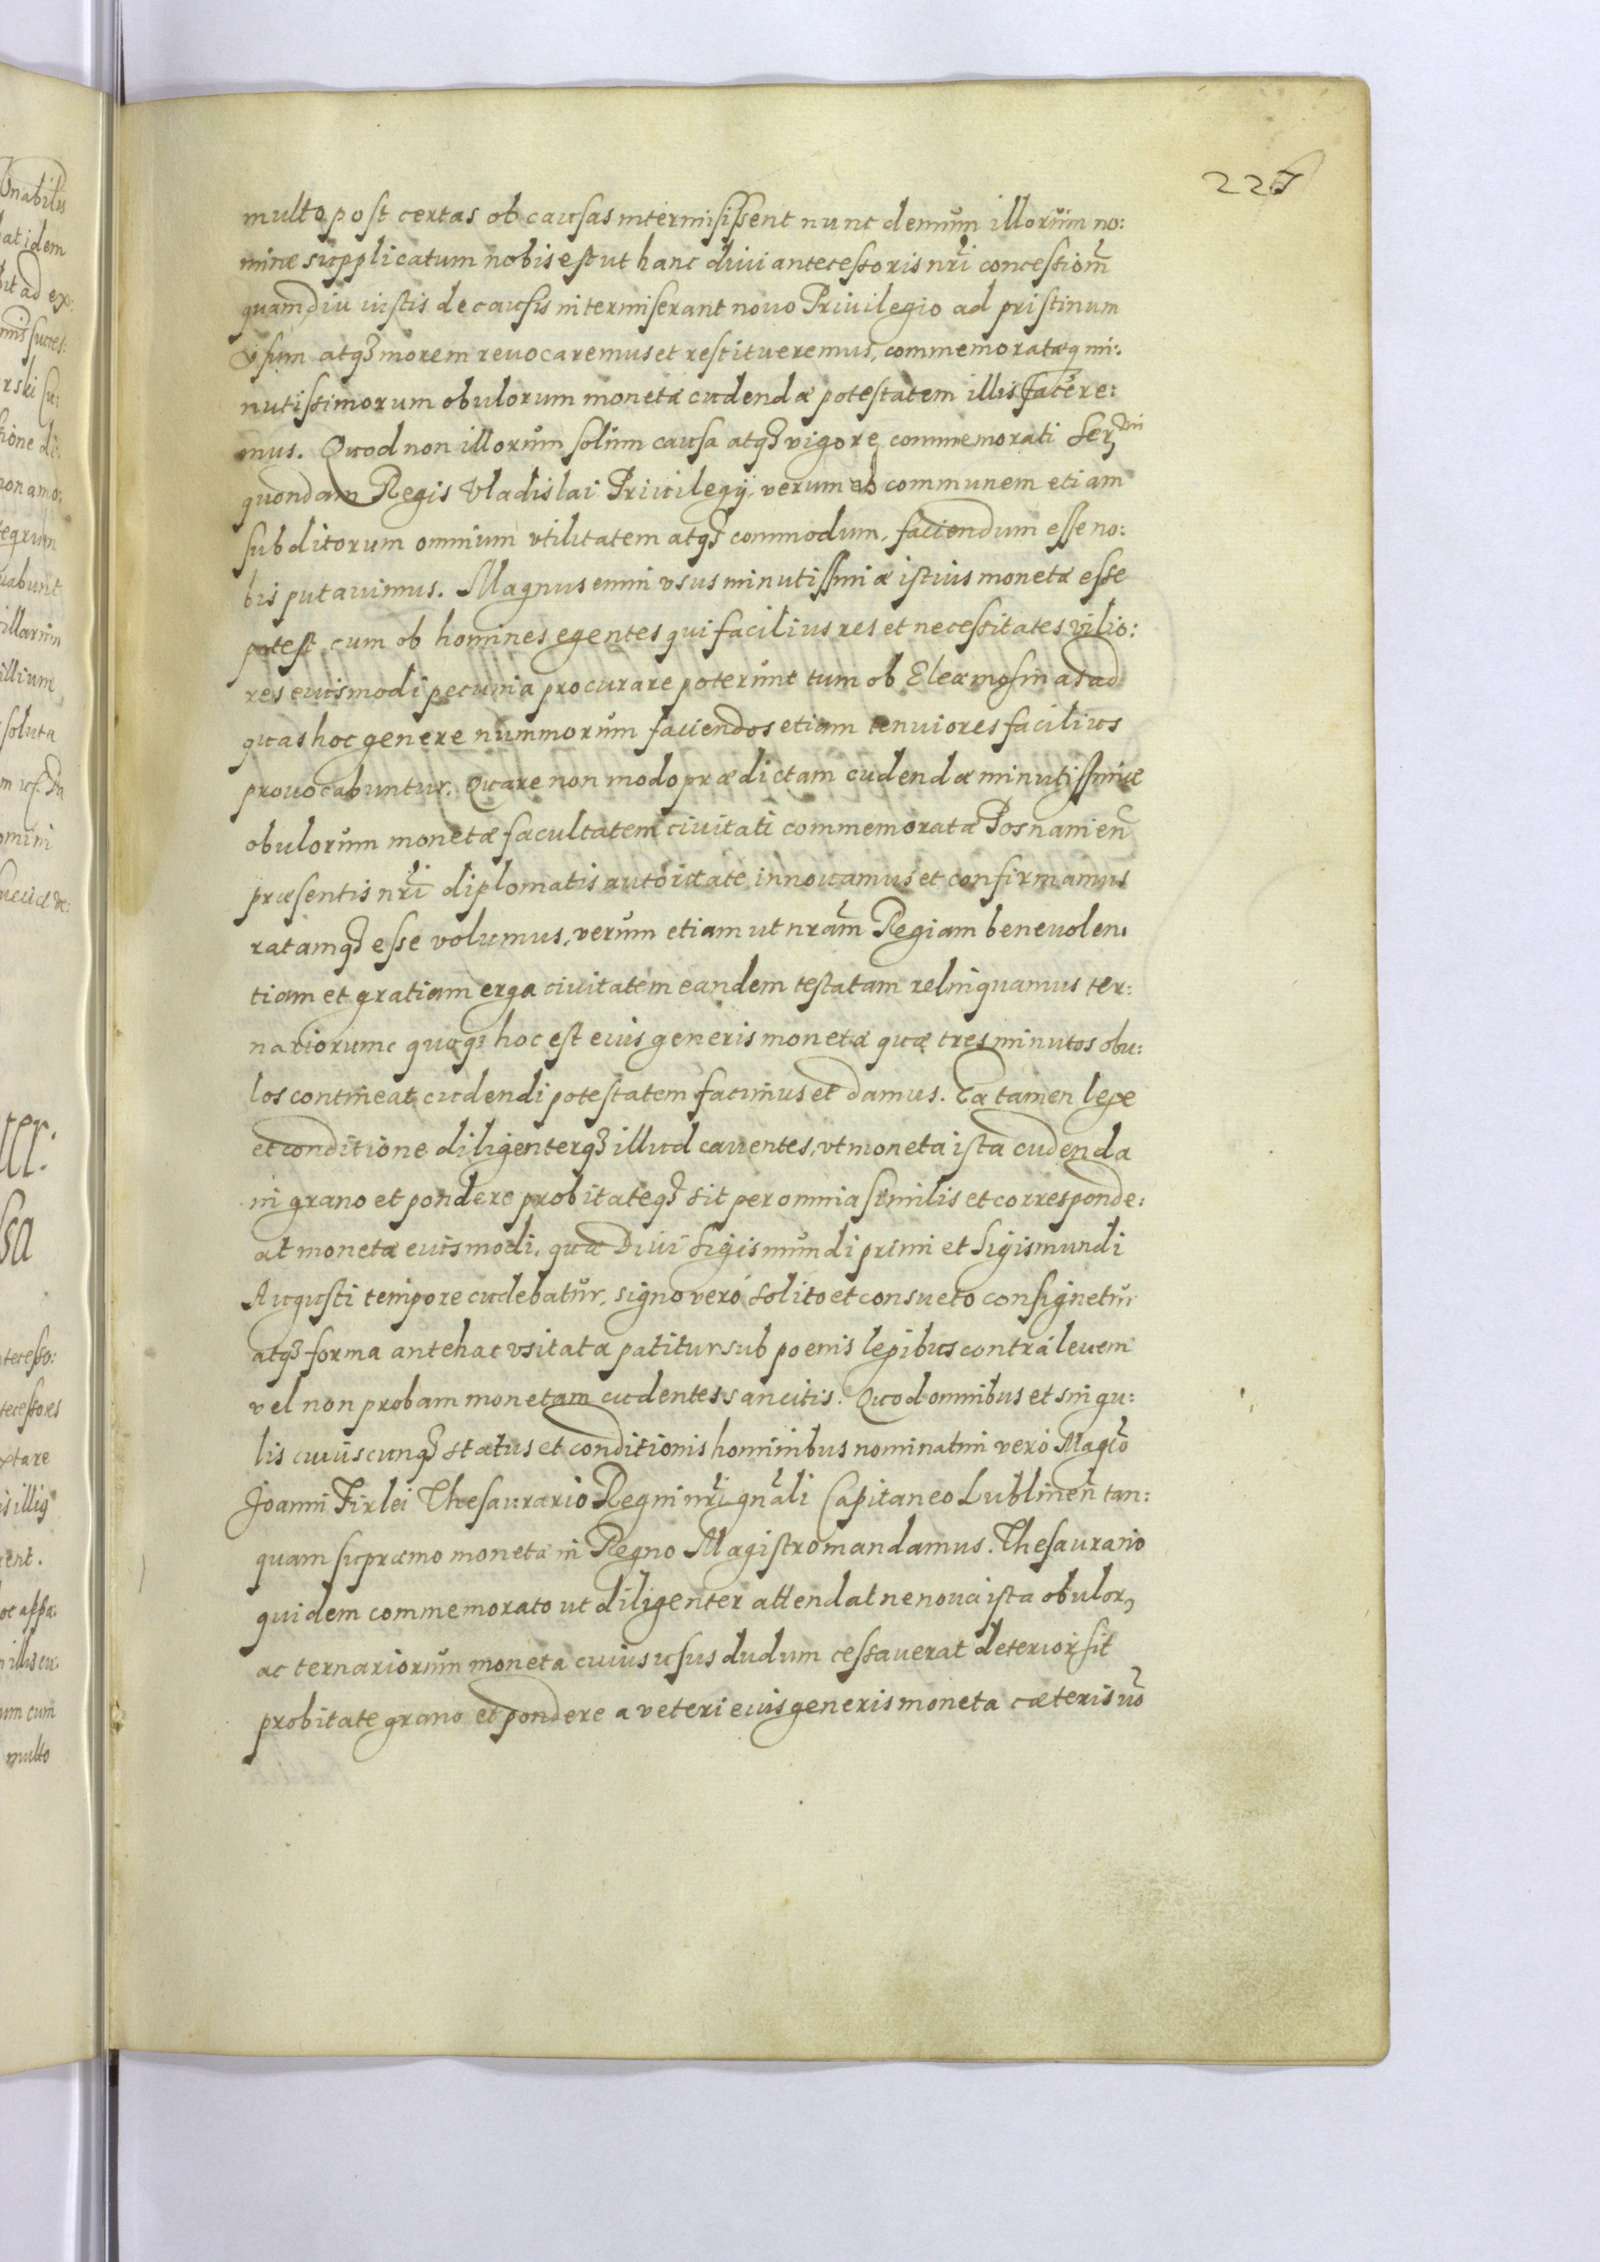 227
multo post certas ob causas intermisissent nunc demum illorum no:
minæ supplicatum nobis est ut hanc divi antecessoris nri concessiom
quamdiu iustis de causis intermiserant novo Privilegio ad pristinum
vsum atq3 morem revocaremus et restitueremus, commemoratæq mi:
nutissimorum obulorum monetæ cudendæ potestatem illis facere:
mus. Quod non illorum solum causa atq3 vigore commemorati Ser dni
quondam Regis Vladislai Privilegij, verum ob communem etiam
subditorum omnium vtilitatem atq3 commodum, faciendum esse no:
bis putavimus. Magnus enim vsus minutissimæ istius monetæ esse
potest cum ob homines egentes qui facilius res et necessitates vilio:
res eiusmodi pecunia procurare poterunt tum ob Eleæmosinas ad
quas hoc genere nummorum faciendos etiam tenuiores facilius
provocabuntur. Quare non modo prædictam cudendæ minutissimæ
obulorum monetæ facultatem civitati commemoratæ Posnanien
præsentis nri diplomatis autoritate innovamus et confirmamus
ratamq3 esse volumus, verum etiam ut nram Regiam benevolen:
tiam et gratiam erga civitatem eandem testatam relinquamus ter:
nariorum quoq3 hoc est eius generis monetæ quæ tres minutos obu:
los contineat cudendi potestatem facimus et damus. Ea tamen lege
et conditione diligenterq3 illud caventes, vt moneta ista cudenda
in grano et pondere probitateq3 sit per omnia similis et corresponde:
at monetæ eiusmodi, quæ Divi Sigismundi primi et Sigismundi
Augusti tempore cudebatur, signo vero solito et consueto consignetur
atq3 forma antehac vsitata patitur sub poenis legibus contra levem
vel non probam monetam cudentes sancitis. Quod omnibus et singu:
lis cuiuscunq3 status et conditionis hominibus nominatim vero Magco
Joanni Firlei Thesaurario Regni nri gnali Capitaneo Lublinen tan:
quam supræmo monetæ in Regno Magistro mandamus. Thesaurario
quidem commemorato ut diligenter attendat ne nova ista obulor,
ac ternariorum moneta cuius usus dudum cessaverat deterior sit
probitate grano et pondere a veteri eius generis moneta cæteris uo